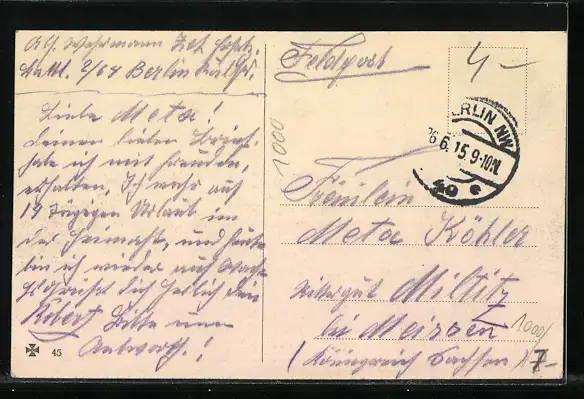 Abs. Wehrmann Zet. Ersatz.
Battl. 2/64 Berlin
Feldpost
4 –
BERLIN NW
26.6.15.9-10N.
40 e
1000
Liebe Meta!
Deinen lieben Brief
habe ich mit Freuden,
erhalten, Ich wahr auf
14 Tägigen Urlaub in
der Heimaht, und heute
bin ich wieder auf Wache
Es Grüßt dich Herlich Dein
Robert Bitte um
Antworth.!
Fräulein
Meta Köhler
Rittergut Miltitz
bei Meissen
(Königreich Sachsen)
1000/
7-
45